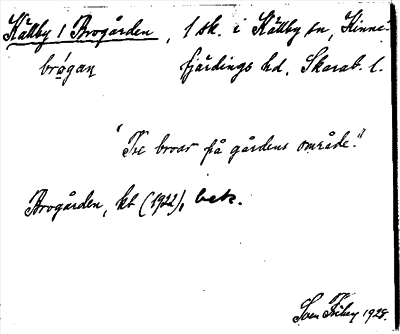 Källby 1 Brogården, 1 sk. i Källby sn, Kinne-
brøgan fjärdings hd, Skarab. l.
"Tre broar på gårdens område."
Brogården, kt (1922), bek.
Sven 1928.